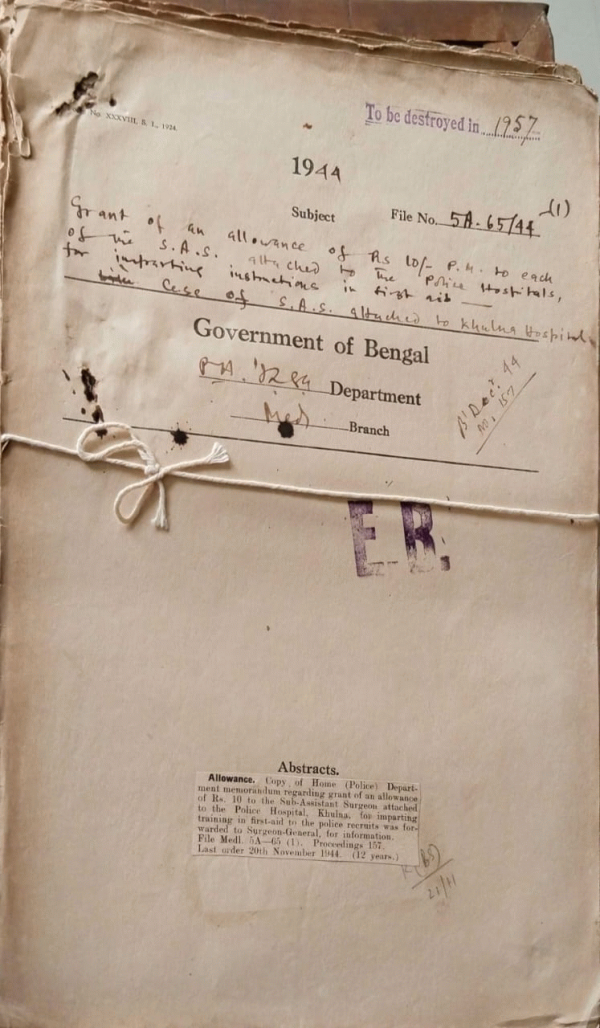 No. XXXVIII, B. I., 1924.
To be destroyed in 1957
1944
Subject
File No. 5A-65/44 (1)
Grant of an allowance of Rs 10/- P.M. to each
of the S.A.S. attached to the Police Hospitals,
for imparting instructions in first aid —
Case of S.A.S. attached to Khulna Hospital.
Government of Bengal
Department
Branch
B Dec. 44
No. 157
E.B.
Abstracts.
Allowance. Copy of Home (Police) Depart-
ment memorandum regarding grant of an allowance
of Rs. 10 to the Sub-Assistant Surgeon attached
to the Police Hospital, Khulna, for imparting
training in first-aid to the police recruits was for-
warded to Surgeon-General, for information.
File Medl. 5A—65 (1). Proceedings 157.
Last order 20th November 1944. (12 years.)
21/11